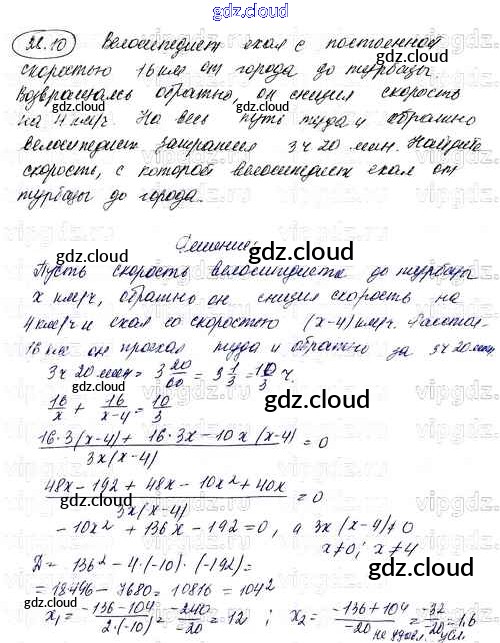 gdz.cloud
22.10 Велосипедист ехал с постоянной
скоростью 16 км от города до турбазы.
Возвращаясь обратно, он снизил скорость
на 4 км/ч. На весь путь туда и обратно
велосипедист затратил 3 ч 20 мин. Найдите
скорость, с которой велосипедист ехал от
турбазы до города.
Решение
Пусть скорость велосипедиста до турбазы
x км/ч, обратно он снизил скорость на
4 км/ч и ехал со скоростью (x-4) км/ч.
16 км он проехал туда и обратно за 3ч 20 мин
3ч 20 мин = 3 20/60 = 3 1/3 = 10/3 ч.
16/x + 16/(x-4) = 10/3
(16·3(x-4) + 16·3x - 10x(x-4))/(3x(x-4)) = 0
(48x - 192 + 48x - 10x² + 40x)/(3x(x-4)) = 0
-10x² + 136x - 192 = 0, а 3x(x-4) ≠ 0
x ≠ 0; x ≠ 4
D = 136² - 4·(-10)·(-192) =
= 18496 - 7680 = 10816 = 104²
x₁ = (-136-104)/(2·(-10)) = -240/-20 = 12 ; x₂ = (-136+104)/-20 = -32/-20 = 1,6
не удовл. усл.